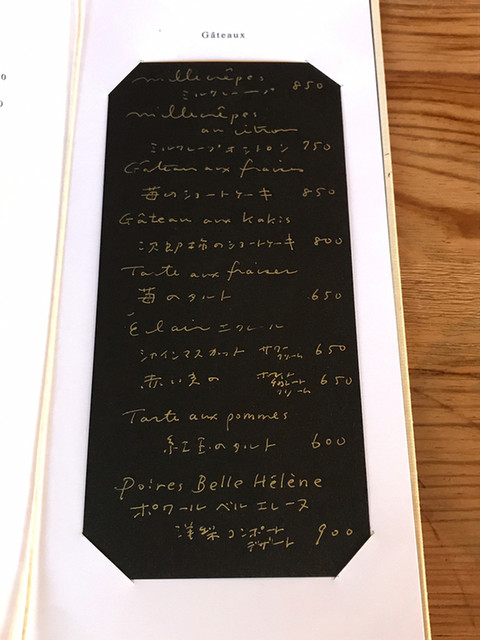 Gâteaux
millecrêpes
ミルクレープ 850
millecrêpes
au citron
ミルクレープオシトロン 750
Gâteau aux fraises
苺のショートケーキ 850
Gâteau aux Kakis
次郎柿のショートケーキ 800
Tarte aux fraises
苺のタルト 650
Éclair エクレール
シャインマスカット サワークリーム 650
赤い実の ホワイトチョコレートクリーム 650
Tarte aux pommes
紅玉のタルト 600
Poires Belle Hélène
ポワール ベル エレーヌ
洋梨コンポート デザート 900